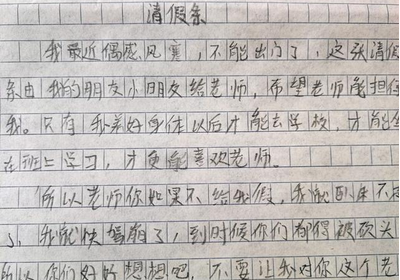 请假条
我最近偶感风寒，不能出门了，这张请假
条由我的朋友小明友给老师，希望老师能担任
我。只有我养好身体以后才能去学校，才能坐
在班上学习，才更能喜欢老师。
所以老师你如果不给我假，我就卧床不起
了，我就快驾崩了，到时候你们都得被砍头
所以你们好好想想吧，不要让我对你这个老